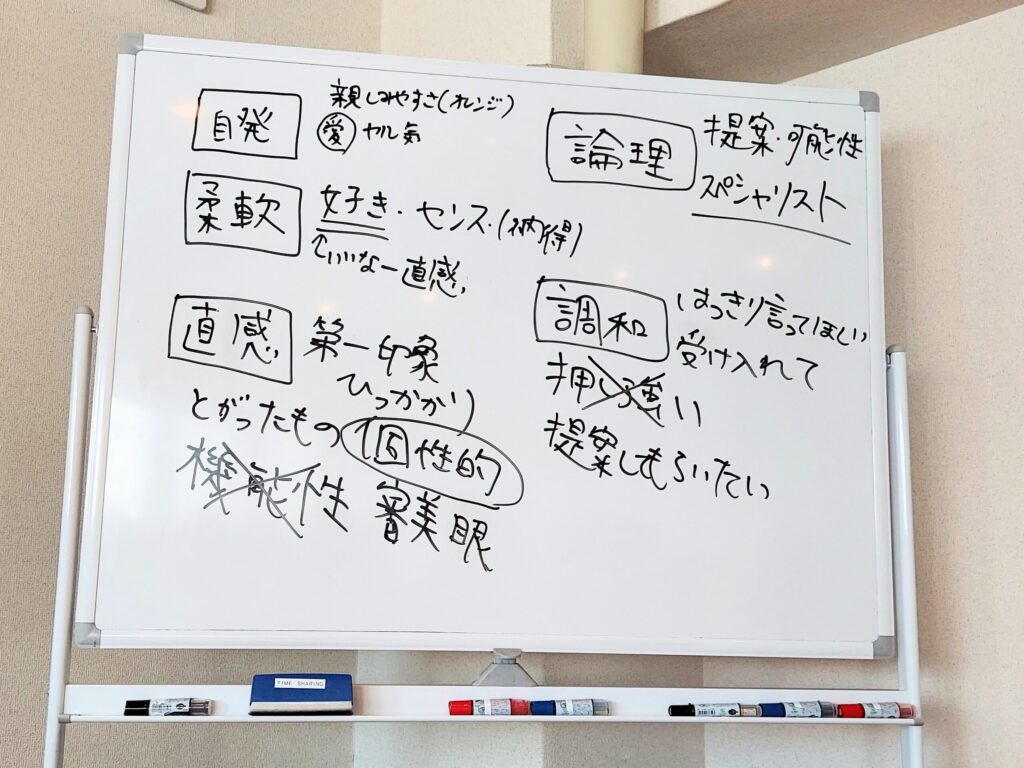 自発
親しみやすさ(オレンジ)
愛 ヤル気
柔軟
好き・センス・(納得)
↑いいなー直感
直感
第一印象
ひっかかり
とがったもの 個性的
機能性 審美眼
論理
提案・可能性
スペシャリスト
調和
はっきり言ってほしい
受け入れて
押し強い
提案してもらいたい
TIME SHARING